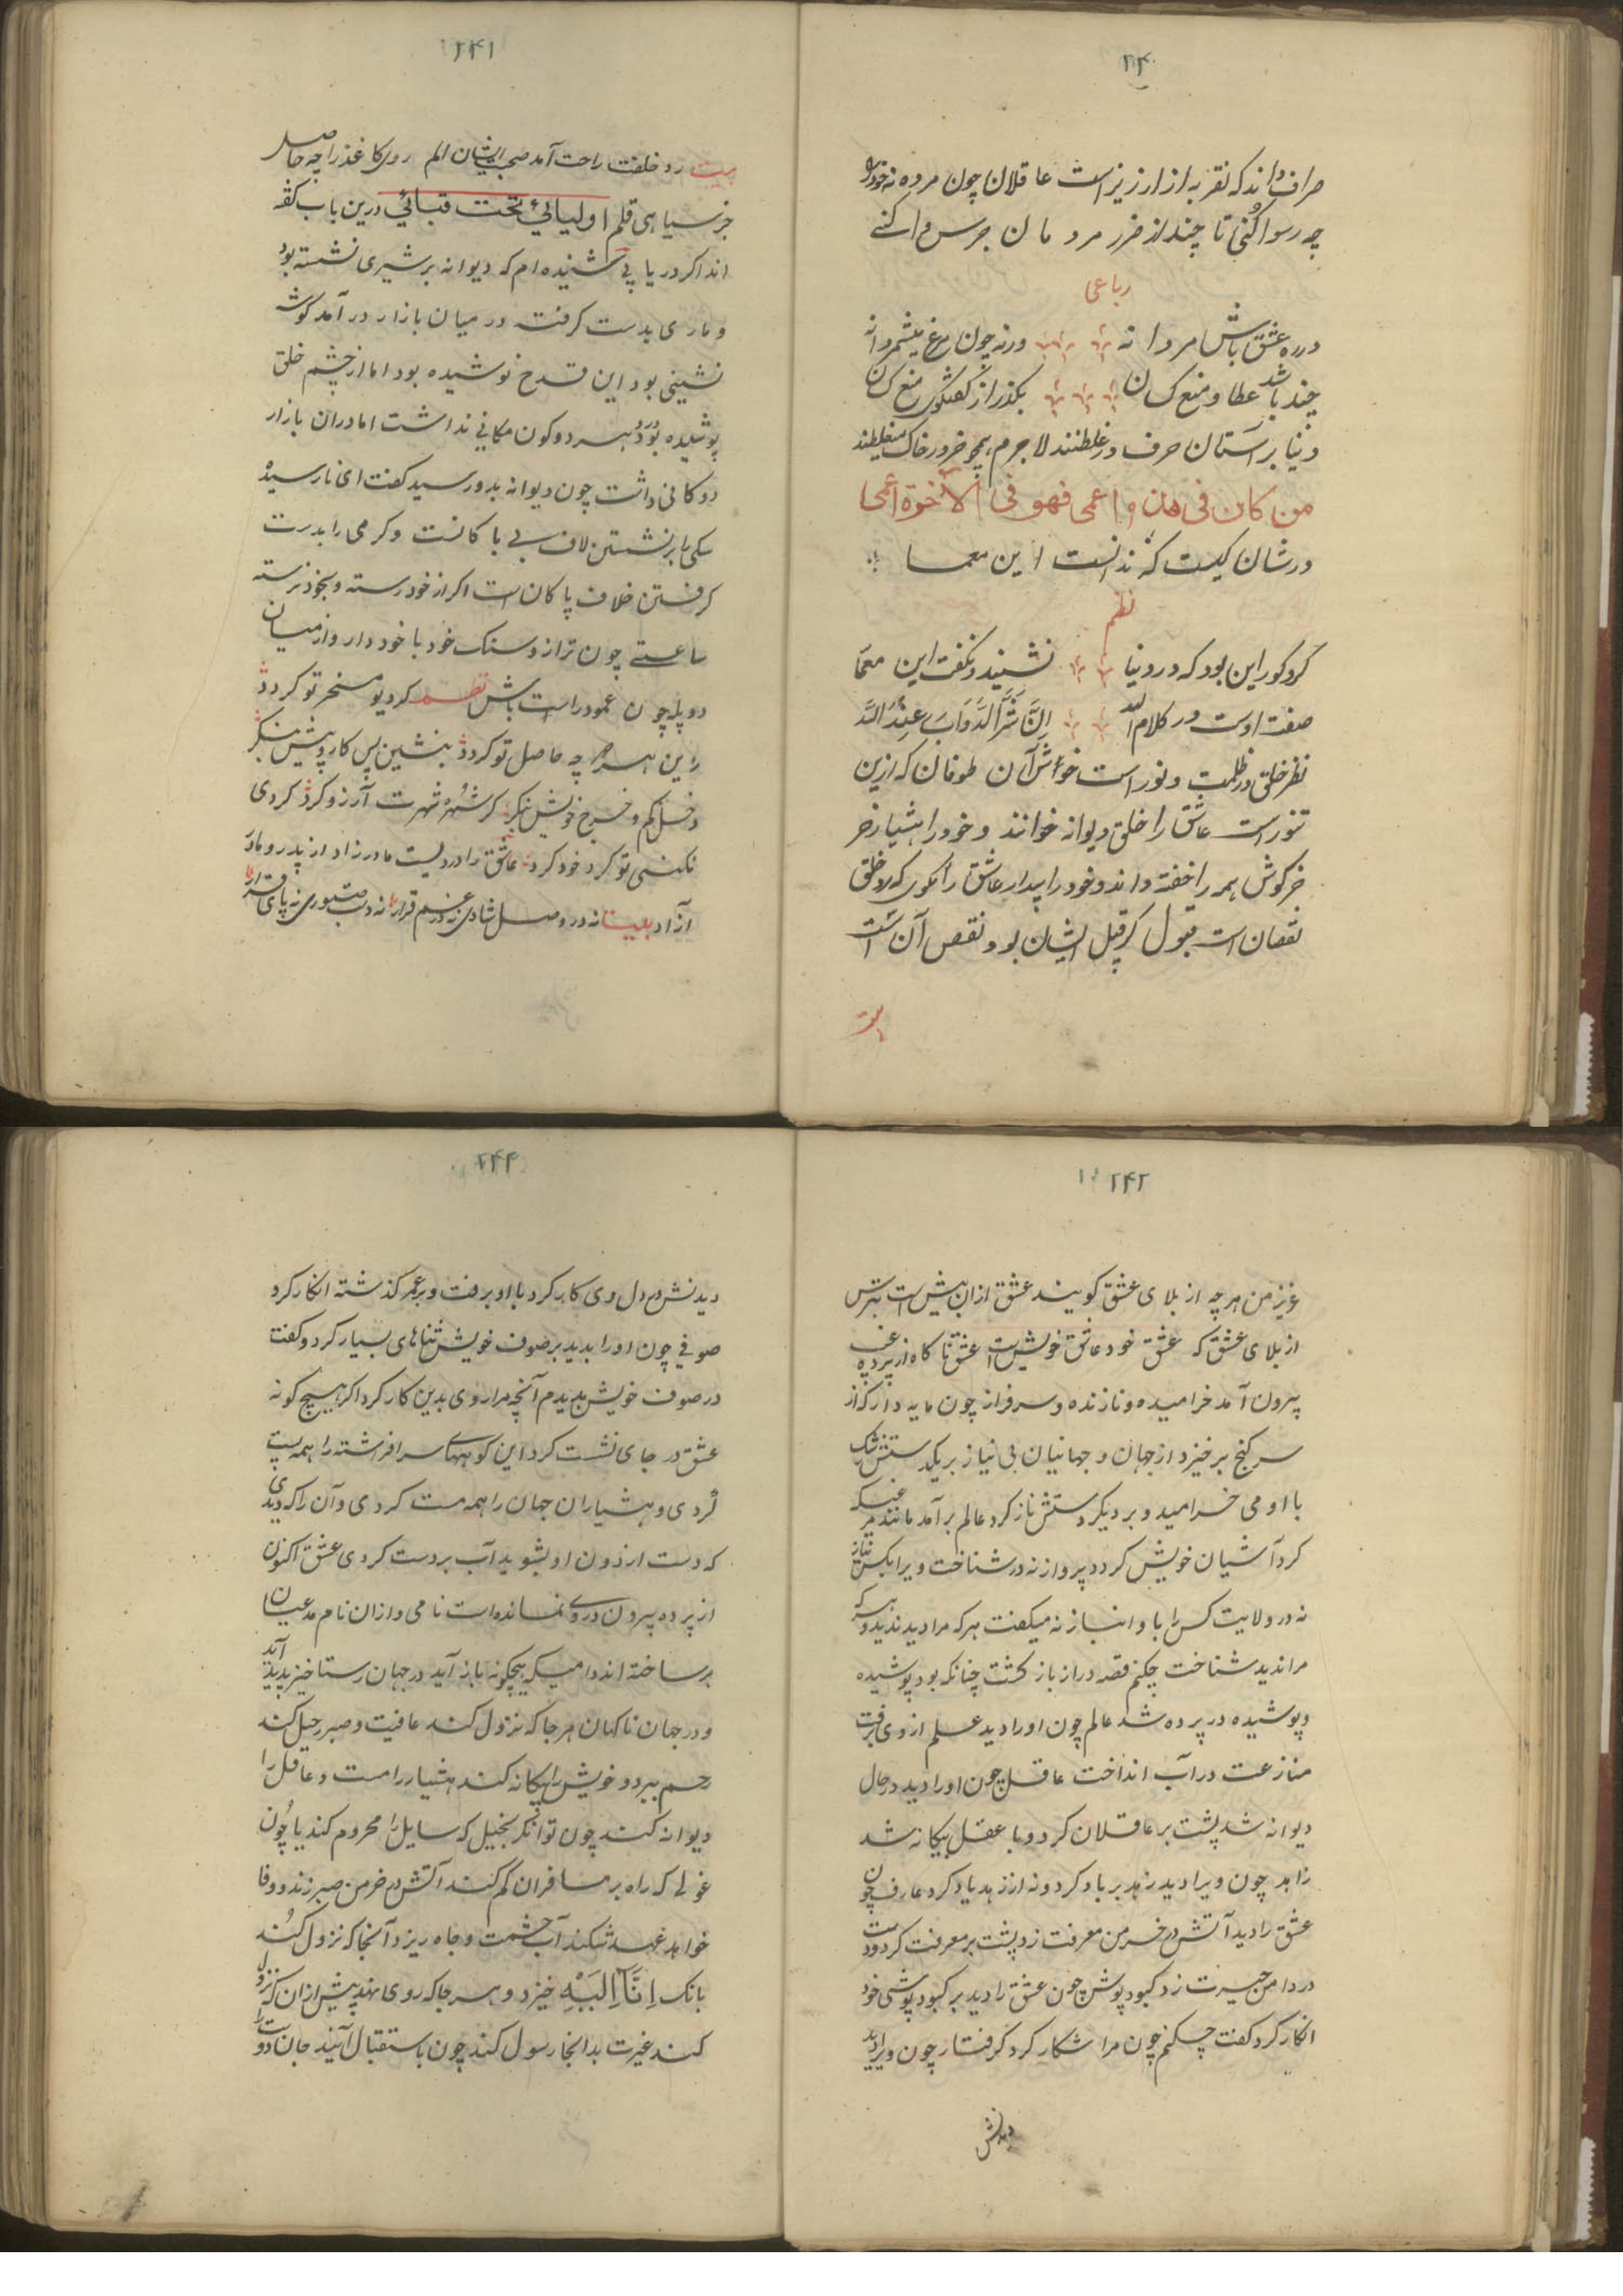 ۲۴۰
صراف داند که نقره از ارزیز است عاقلان چون مرده نه خود را
چه رسوا کنی تا چند از ضرر مردمان جرس وا کنی
رباعی
در ره عشق باش مردانه ورنه چون مرغ میشمر دانه
چند باشد عطا و منع کسان بکذر از کفتکوی منع کن
دنیا پرستان حرف در غلطنند لاجرم همچو خر در خاک میغلطند
من كان في هذه اعمى فهو في الآخرة اعمى
در شان کیست که ندانست این معما
نظم
کر و کور این بود که در دنیا نشنید و نکفت این معما
صفت اوست در کلام الله ان شر الدواب عند الله
نظر خلق در ظلمت و نور است خوش آن طوفان که ازین
تنور است عاشق را خلق دیوانه خوانند و خود را هشیار خر
خرکوش همه را خفته داند و خود را بیدار عاشق را نکوی که رد خلق
نقصان است قبول کر قبل ایشان بود نقص آن است
بیت
۲۴۱
بیت رد خلقت راحت آمد صحبت ایشان الم روی کاغذ را چه حاصل
جز سیاهی قلم اولیائی تحت قبائی درین باب کفته
اند اکر دریابی شنیده ام که دیوانه بر شیری نشسته بود
و ماری بدست کرفته در میان بازار در آمد کوشه
نشینی بود این قدح نوشیده بود اما از چشم خلق
پوشیده بود در هر دو کون مکانی نداشت اما در ان بازار
دوکانی داشت چون دیوانه بدو رسید کفت ای نارسیده
سکی را بر نشستن لاف بی باکانست و کرمی را بدست
کرفتن خلاف پاکان است اکر از خود رسته و بخود نرسته
ساعتی چون ترازو سنک خود با خود دار و از میان
دو پله چون عمود راست باش نظم کر دیو مسخر تو کردد
زاین همه چه حاصل تو کردد بنشین پس کار و پیش منکر
دخل کم و خرج خویش بنکر کر شهره شهرت آرزو کرد کردی
نکنی تو کرد خود کرد عاشق را در دلیست مادرزاد از پدر و مادر
آزاد بیت نه در وصل شادی نه در غم قرار نه دست صبوری نه پای فرار
۲۴۲
عزیز من هر چه از بلای عشق کویند عشق از ان بیش است بترس
از بلای عشق که عشق خود عاشق خویش است عشق ناکاه از پرده غیب
بیرون آمد خرامیده و نازنده و سرفراز چون مایه دار که از
سر کنج برخیزد از جهان و جهانیان بی نیاز بر یکدستش نیک
با او می خرامید و بر دیکر دستش ناز کرد عالم بر آمد مانند مرغیکه
کرد آشیان خویش کردد پرواز نه در شناخت ویرا بکس نیاز
نه در ولایت کس را با او انباز نه میکفت هر که مرا دید ندید و هر که
مرا ندید شناخت چکنم قصه دراز باز کشت چنانکه بود پوشیده
و پوشیده در پرده شد عالم چون او را دید علم از وی برفت
منازعت در آب انداخت عاقل چون او را دید در حال
دیوانه شد پشت بر عاقلان کرد و با عقل بیکانه شد
زاهد چون ویرا دید زهد بر باد کرد و نه از زهد یاد کرد عارف چون
عشق را دید آتش در خرمن معرفت زد پشت بر معرفت کرد و دست
در دامن حیرت زد کبود پوش چون عشق را دید بر کبود پوشی خود
انکار کرد کفت چکنم چون مرا شکار کرد کرفتار چون ویرا دید
دیدنش
۲۴۳
دیدنش در دل وی کار کرد با او برفت و بر عمر کذشته انکار کرد
صوفی چون او را بدید بر صوف خویش ثناهای بسیار کرد و کفت
در صوف خویش بدیدم آنچه مرا روی بدین کار کرد اکر هیچ کونه
عشق در جای نشست کرد این کوههای سر افراشته را همه پست
کردی و هشیاران جهان را همه مست کردی و آن را که دیدی
که دست از دون او بشوید آب بر دست کردی عشق اکنون
از پرده بیرون در وی نمانده است نامی و از ان نام مدعیان
بر ساخته اند دامیکه هیچکونه باز آید در جهان رستاخیز پدید آید
و در جهان ناکهان هر جا که نزول کند عافیت و صبر رحیل کند
رحم ببرد و خویش را بیکانه کند هشیار را مست و عاقل را
دیوانه کند چون توانکر بخیل که سایل را محروم کند یا چون
غولی که راه بر مسافران کم کند آتش در خرمن صبر زند و وفا
خواهد عهد شکند آب حشمت و جاه ریزد آنجا که نزول کند
بانک انا الیه خیزد و هر جا که روی نهد پیش از ان که نزول
کند غیرت بدانجا رسول کند چون باستقبال آیند جان و